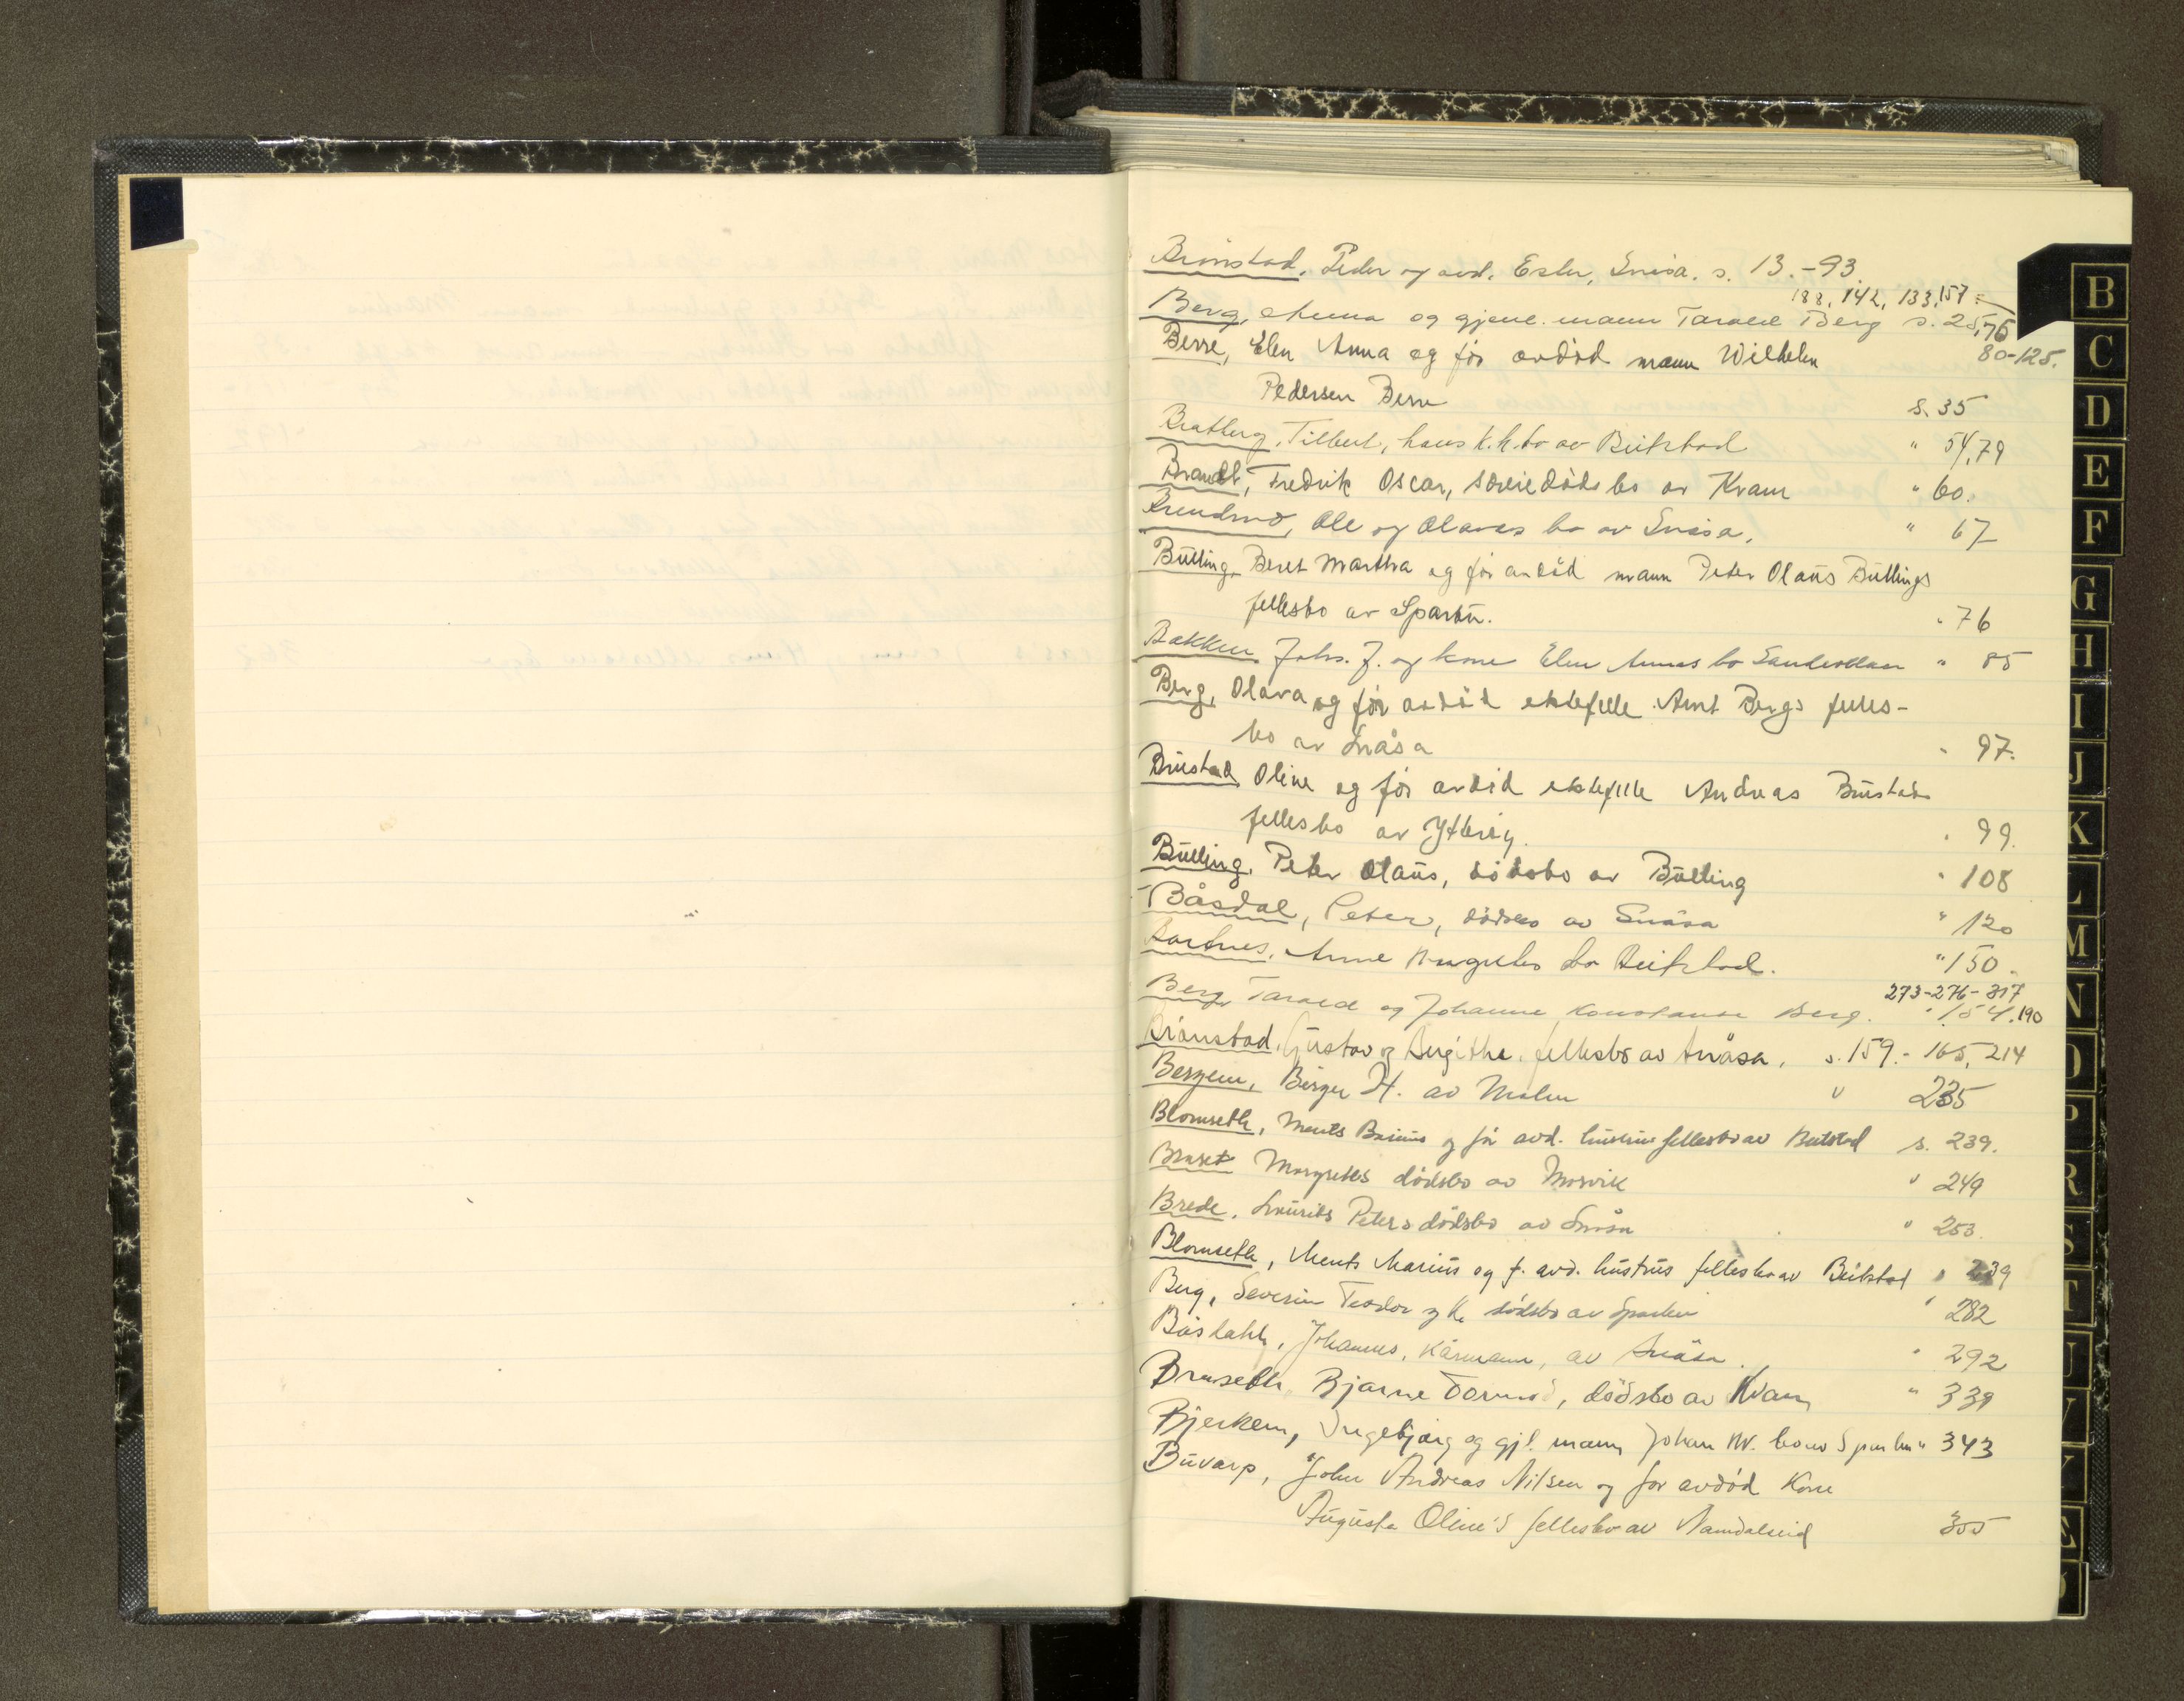 Brønstad, Peder og avd. Ester, Snåsa. s. 13.-93.
188, 142, 133, 157
Berg, Anna og gjenl. mann Tarald Berg s. 25, 76
80-125.
Berre, Elen Anna og før avdød mann Wilhelm
Pedersen Berre s. 35
Bratberg, Tilbert, hans k.h. bo av Beitstad " 54, 79
Brandt, Fredrik Oscar, særeiedødsbo av Kvam " 60.
Brendmo, Ole og Olavas bo av Snåsa. " 67
Bulling, Beret Martha og før avdød mann Peter Olaus Bullings
fellesbo av Sparbu. " 76
Bakken Johs. J. og kone Elen Annas bo Sandvollan " 85
Berg, Olava og før avdød ektefelle Arnt Bergs felles-
bo av Snåsa " 97.
Bustad Oline og før avdød ektefelle Andreas Bustads
fellesbo av Ytterøy. " 99.
Bulling, Peter Olaus, dødsbo av Bulling " 108
Båsdal, Peter, dødsbo av Snåsa " 120
Bartnes, Anne Margretes bo Beitstad. " 150.
273-276-317
Berg Tarald og Johanne Konstanse Berg. " 154, 190
Brønstad, Gustav og Bergithe, fellesbo av Snåsa. s. 159.- 165, 214
Bergem, Birger H. av Malm " 235
Blomseth, Ments Marius og før avd. hustrus fellesbo av Beitstad s. 239.
Bruset Margretes dødsbo av Mosvik " 249
Brede, Laurits Peters dødsbo av Snåsa " 253.
Blomseth, Ments Marius og f. avd. hustrus fellesbo av Beitstad " 239
Berg, Severin Teodor og k. dødsbo av Sparbu " 282
Båsdahl, Johannes, kårmann, av Snåsa. " 292
Bruseth, Bjarne Tormod, dødsbo av Kvam " 339
Bjerkem, Ingebjørg og gjl. mann Johan bo av Sparbu " 343
Buvarp, John Andreas Nilsen og før avdød kone
Augusta Oline's fellesbo av Namdalseid 355
B
C
D
E
F
G
H
I
J
K
L
M
N
O
P
R
S
T
U
V
Y
Æ
Ø